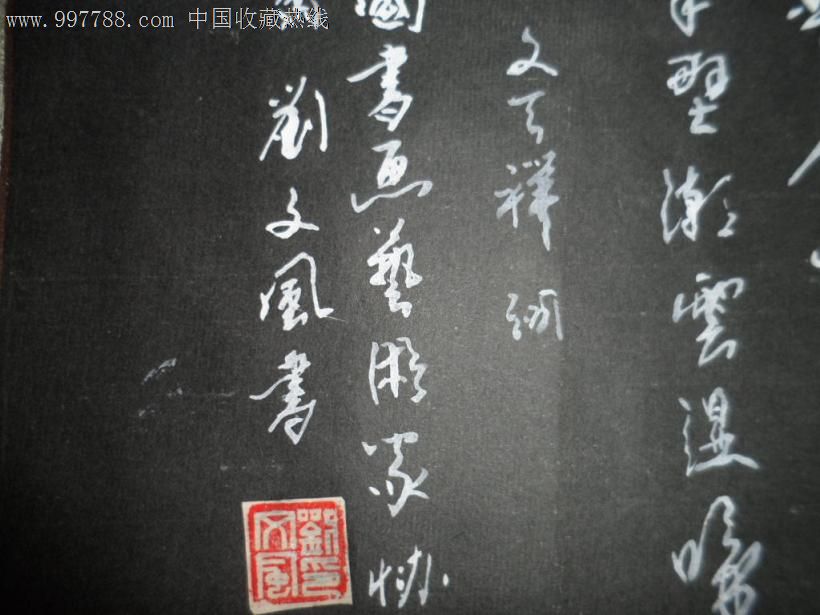 www.997788.com 中国收藏热线
野潮雲湿
文天祥词
國書画藝術家协
劉文風書
劉文風印